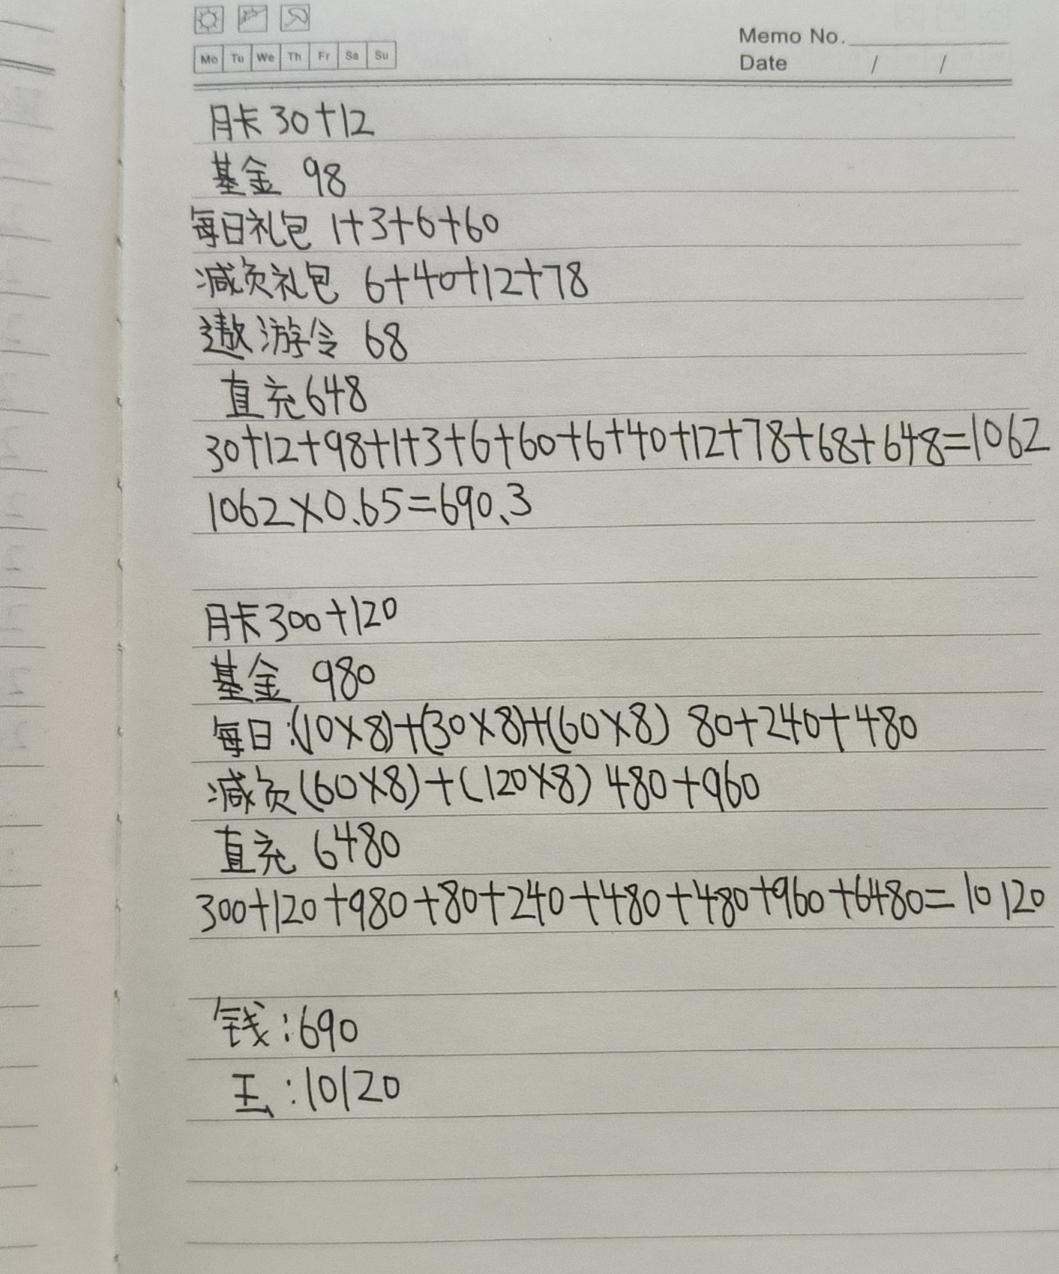 Mo Tu We Th Fr Sa Su
Memo No.
Date / /
月卡30+12
基金 98
每日礼包 1+3+6+60
减负礼包 6+40+12+78
遨游令 68
直充648
30+12+98+1+3+6+60+6+40+12+78+68+648=1062
1062×0.65=690.3
月卡300+120
基金 980
每日:(10×8)+(30×8)+(60×8) 80+240+480
减负(60×8)+(120×8) 480+960
直充 6480
300+120+980+80+240+480+480+960+6480=10120
钱:690
玉:10120